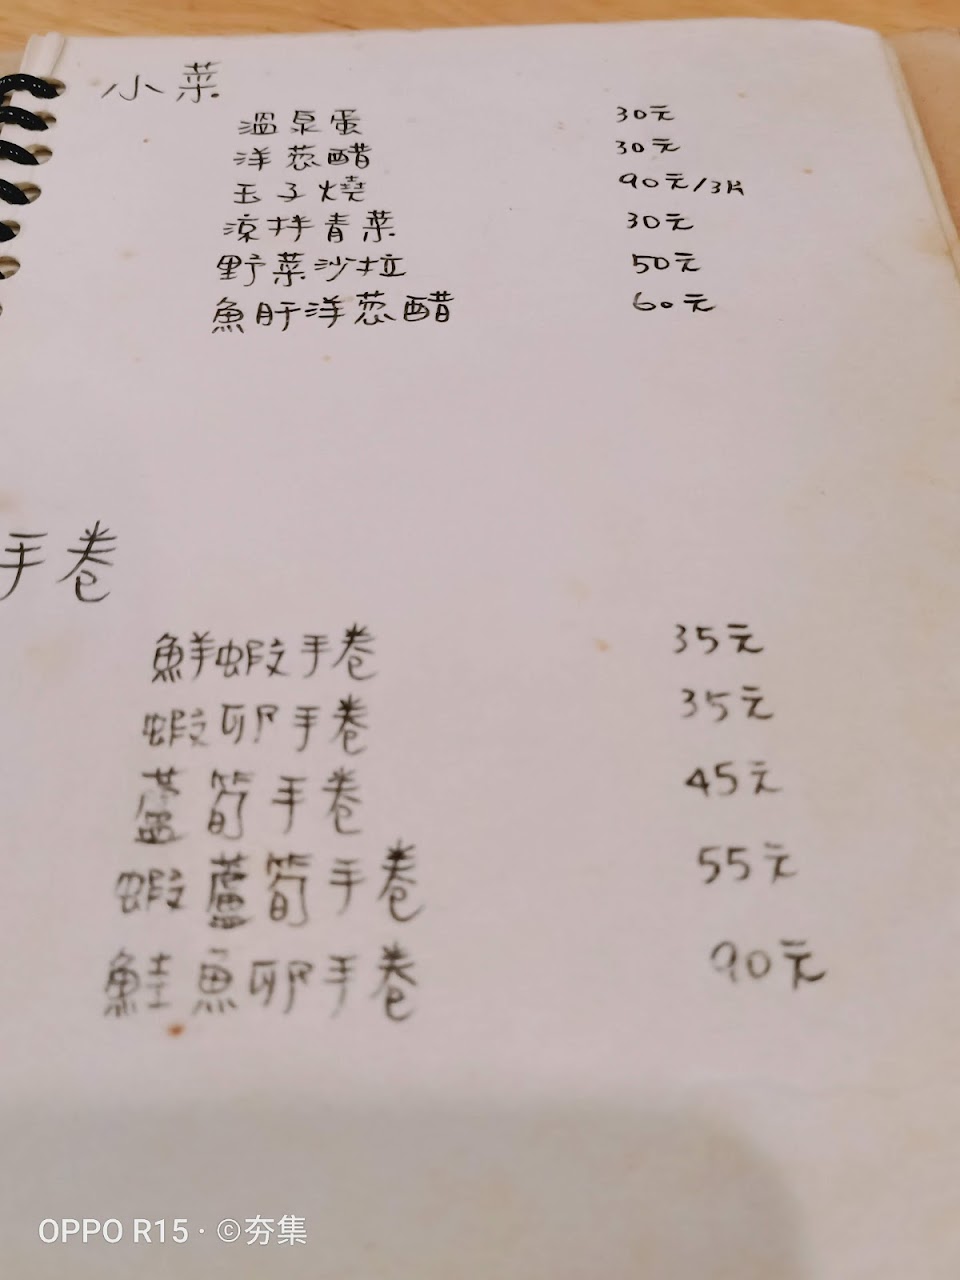 小菜
溫泉蛋 30元
洋蔥醋 30元
玉子燒 90元/3片
涼拌青菜 30元
野菜沙拉 50元
魚肝洋蔥醋 60元
手卷
鮮蝦手卷 35元
蝦卵手卷 35元
蘆筍手卷 45元
蝦蘆筍手卷 55元
鮭魚卵手卷 90元
OPPO R15 · ©夯集